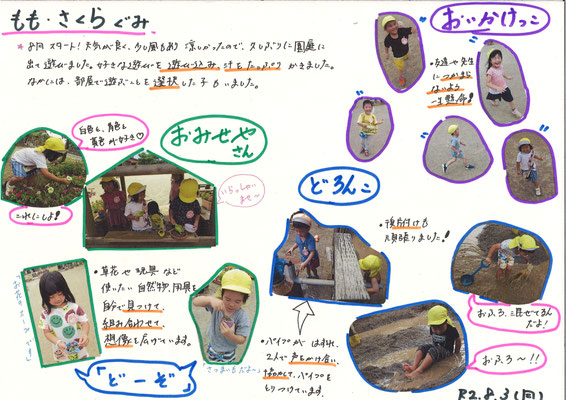 もも・さくらぐみ
*8月スタート!天気が良く、少し風もあり涼しかったので、久しぶりに園庭に
出て遊びました。好きな遊びを遊び込み、汗をたっぷりかきました。
なかには、部屋で遊ぶことを選択した子もいました。
おいかけっこ
・友達や先生
につかまら
ないよう
一生懸命!
白色と、青色と
黄色が好き♡
これにしよ!
おみせや
さん
いらっしゃい
ませ〜
・草花や玩具など
使いたい自然物、用具を
自分で見つけて、
組み合わせて、
想像を広げています。
「どーぞ」
さつまいもだよ〜
どろんこ
・後片付けも
頑張りました!
・パイプがはずれ、
2人で声をかけ合い、
協力して、パイプを
とりつけています。
おふろ、混ぜてるん
だよ!
おふろ〜!!
R2.8.3(月)